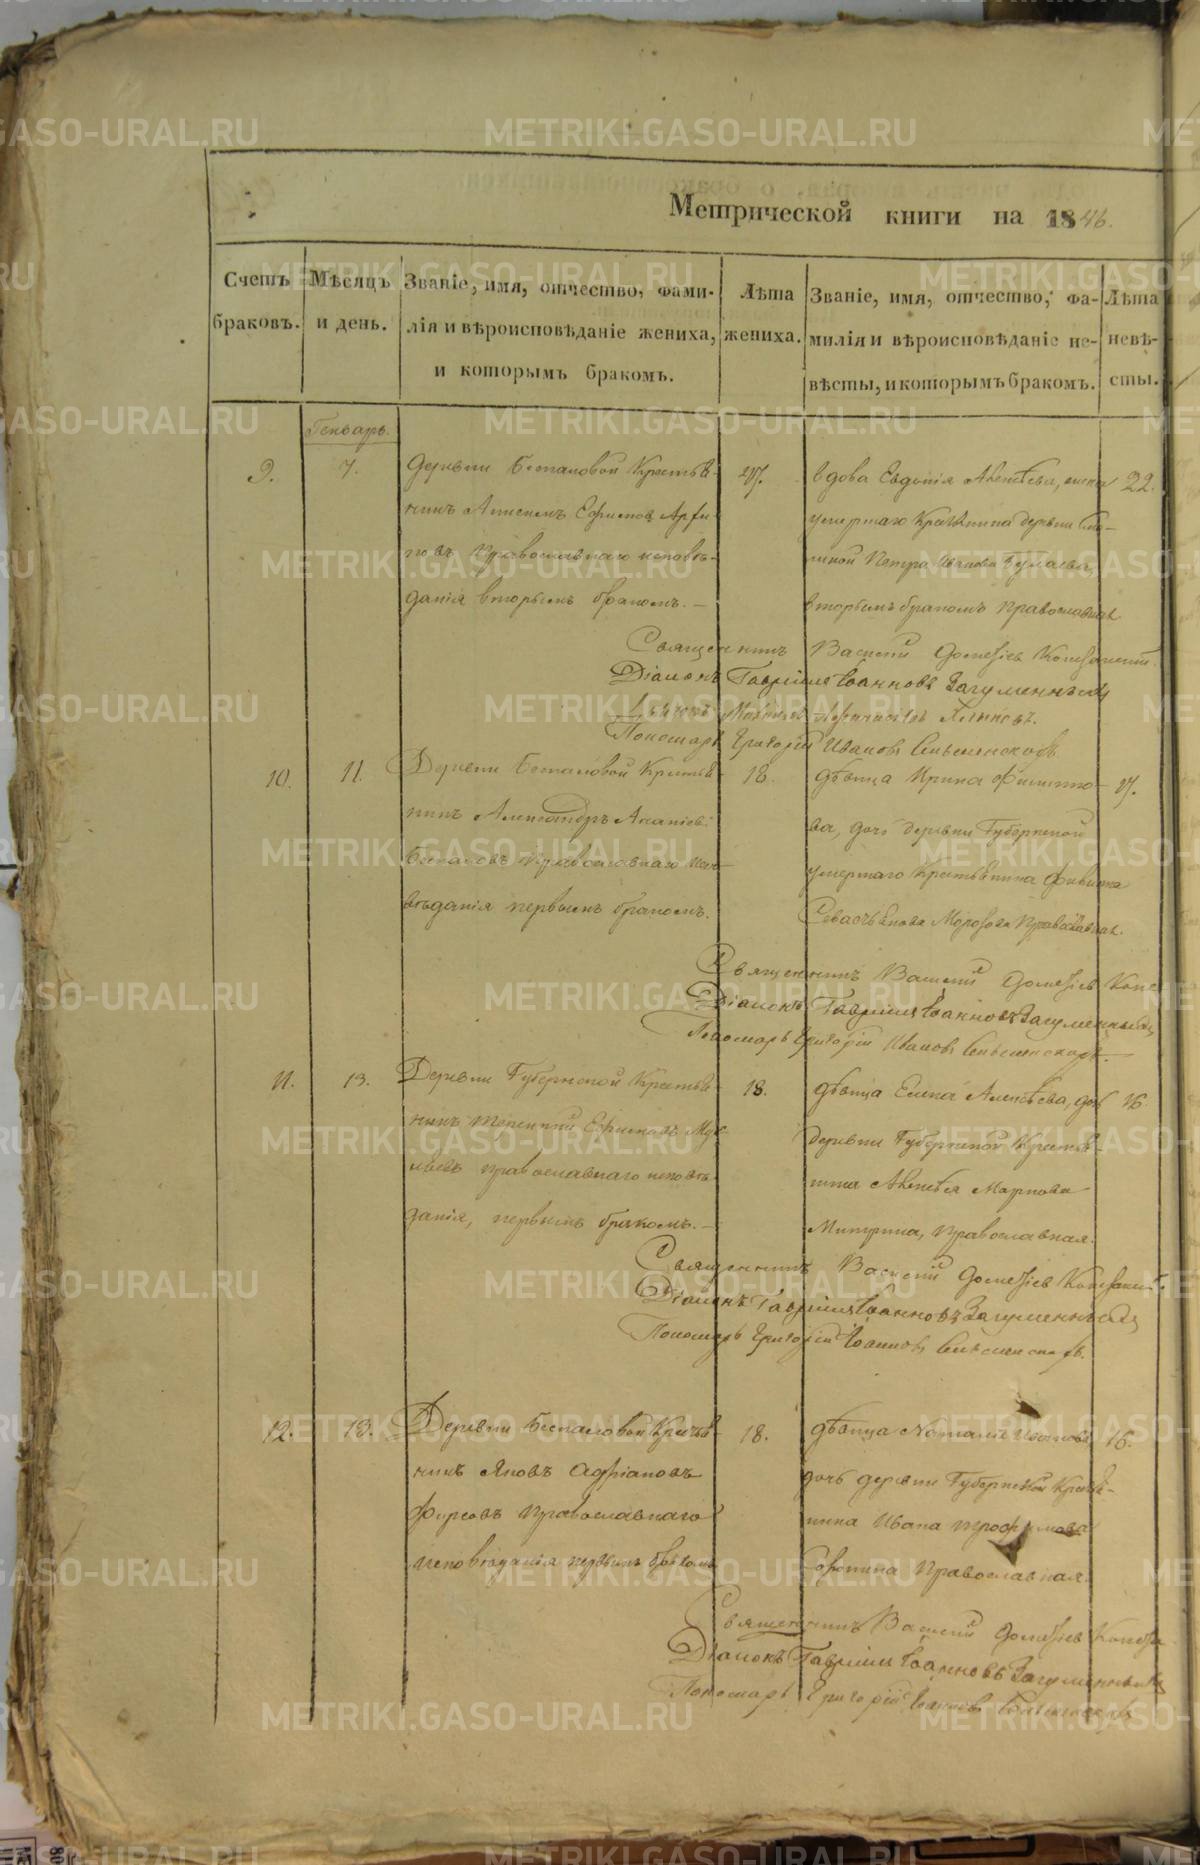 Метрической книги на 1846.
Счетъ браковъ.
Мѣсяцъ и день.
Званіе, имя, отчество, фами-
лія и вѣроисповѣданіе жениха,
и которымъ бракомъ.
Лѣта жениха.
Званіе, имя, отчество, фа-
милія и вѣроисповѣданіе не-
вѣсты, и которымъ бракомъ.
Лѣта невѣ-
сты.
Генварь.
9.
7.
Деревни Беспаловой Крестья-
нинъ Ефимовъ
Православнаго исповѣ-
данія вторымъ бракомъ.
27.
вдова Евдокія Алексѣева, жена
умершаго Крестьянина деревни
Петра Иванова
вторымъ бракомъ Православная
22.
Священникъ Василій
Діаконъ Гавріилъ Іоанновъ Загуменныхъ
Пономарь Григорій Ивановъ
10.
11.
Деревни Беспаловой Крестья-
нинъ Александръ Ананіевъ
Беспаловъ Православнаго испо-
вѣданія первымъ бракомъ.
18.
дѣвица Ирина Филиппо-
ва, дочь деревни Губернской
умершаго Крестьянина Филиппа
Севастьянова Морозова Православная.
17.
Священникъ Василій
Діаконъ Гавріилъ Іоанновъ Загуменныхъ
Пономарь Григорій Ивановъ
11.
13.
Деревни Губернской Крестья-
нинъ Терентій Ефимовъ
Православнаго исповѣ-
данія, первымъ бракомъ.
18.
дѣвица Елена Алексѣева, дочь
деревни Губернской Крестья-
нина Алексѣя Маркова
Православная.
16
Священникъ Василій
Діаконъ Гавріилъ Іоанновъ Загуменныхъ
Пономарь Григорій Іоанновъ
12.
13.
Деревни Беспаловой Крестья-
нинъ Яковъ Адріановъ
Фирсовъ Православнаго
исповѣданія первымъ бракомъ
18.
дѣвица Наталія Иванова
дочь деревни Губернской Крестья-
нина Ивана Трофимова
Православная.
16.
Священникъ Василій
Діаконъ Гавріилъ Іоанновъ Загуменныхъ
Пономарь Григорій Іоанновъ
METRIKI.GASO-URAL.RU